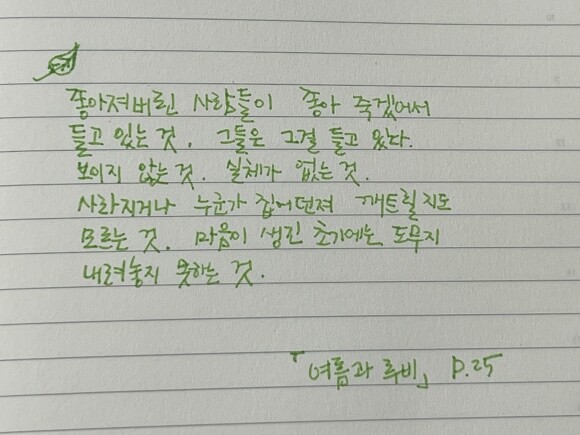 좋아져버린 사람들이 좋아 죽겠어서
들고 있는 것. 그들은 그걸 들고 왔다.
보이지 않는 것. 실체가 없는 것.
사라지거나 누군가 집어던져 깨트릴지도
모르는 것. 마음이 생긴 초기에는 도무지
내려놓지 못하는 것.
「여름과 루비」 p.25